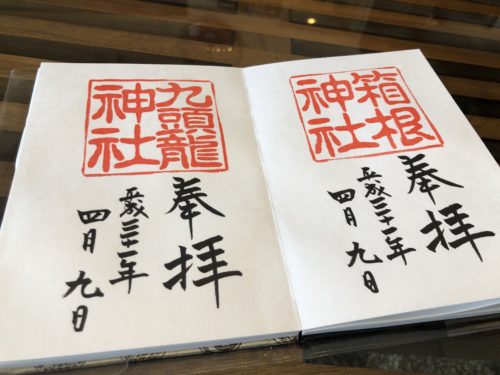 箱根
神社
奉拝
平成三十一年
四月九日
九頭龍
神社
奉拝
平成三十一年
四月九日